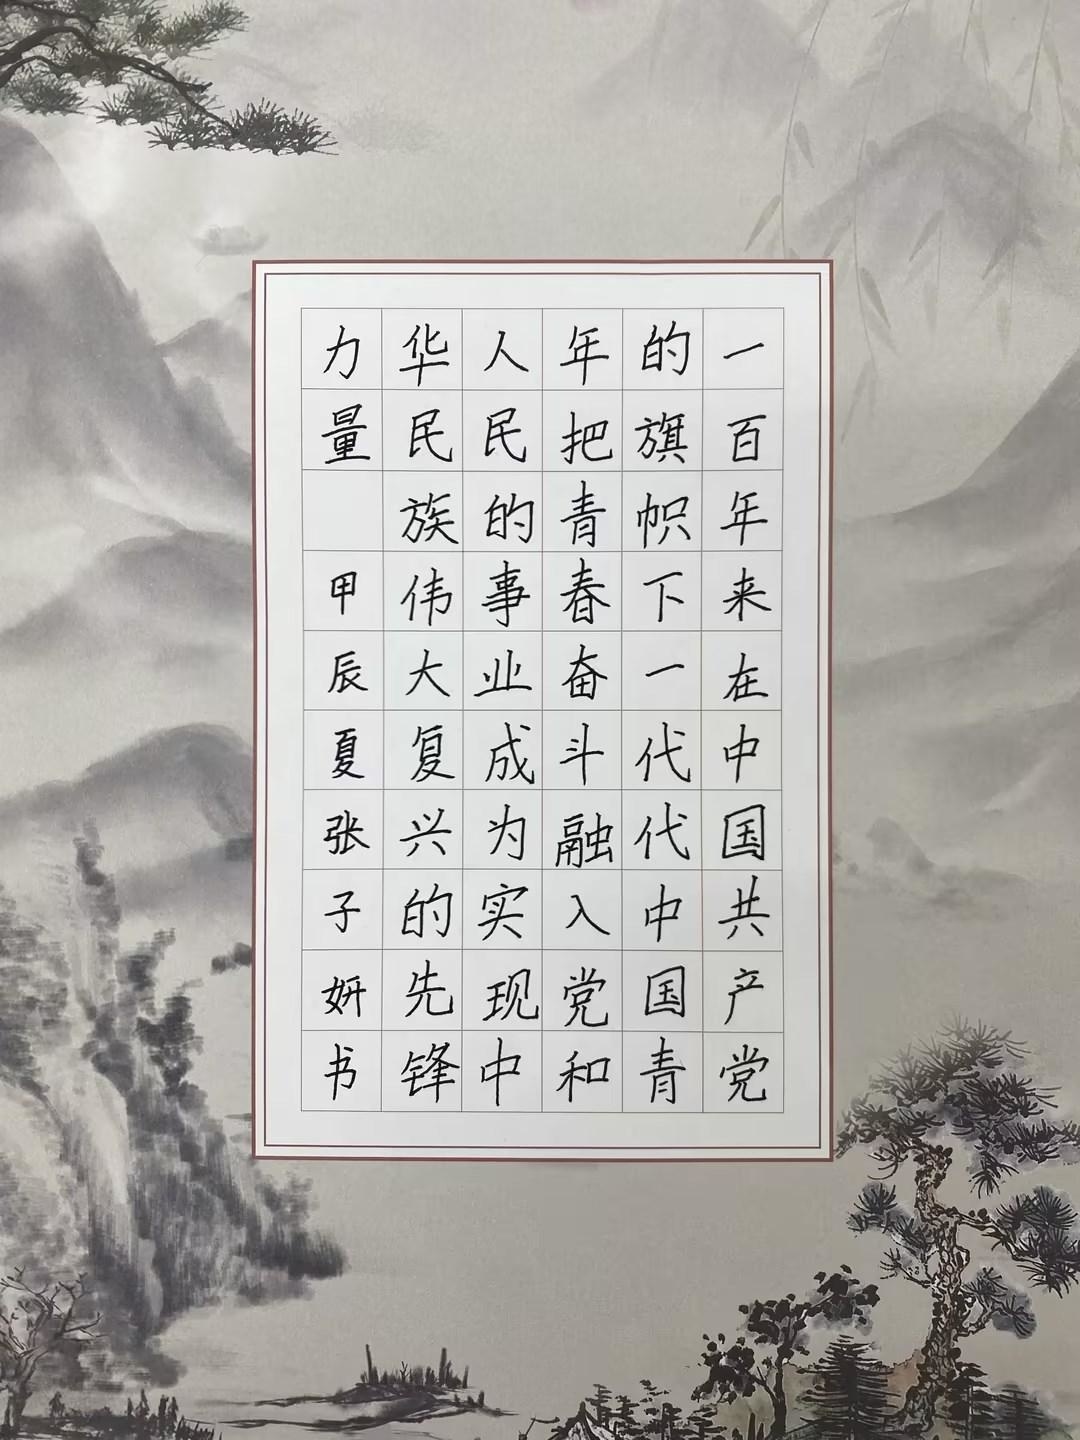 一百年来在中国共产党
的旗帜下一代代中国青
年把青春奋斗融入党和
人民的事业成为实现中
华民族伟大复兴的先锋
力量 甲辰夏张子妍书